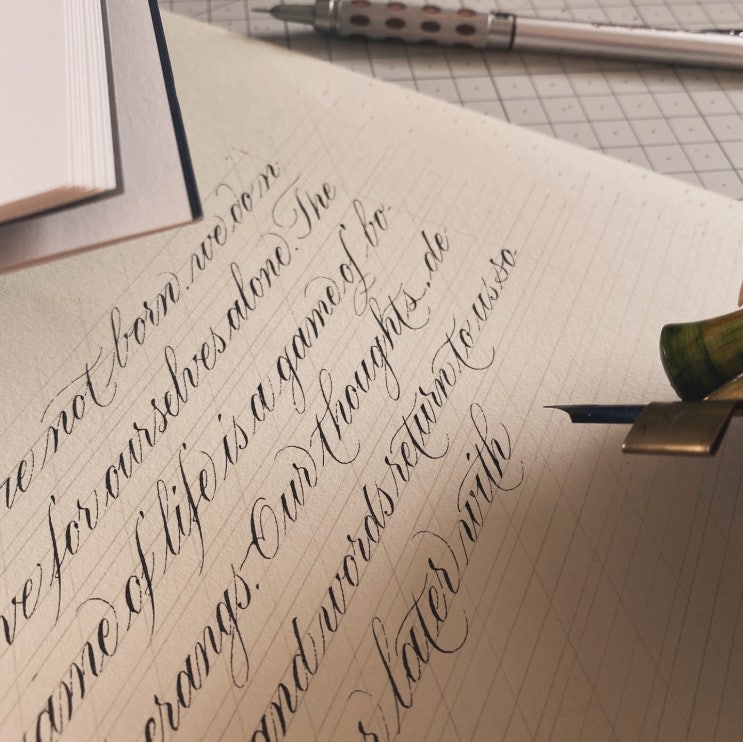 re not born. we do n
ve for ourselves alone. The
ame of life is a game of bo-
erangs. Our thoughts, de-
and words return to us so
r later with